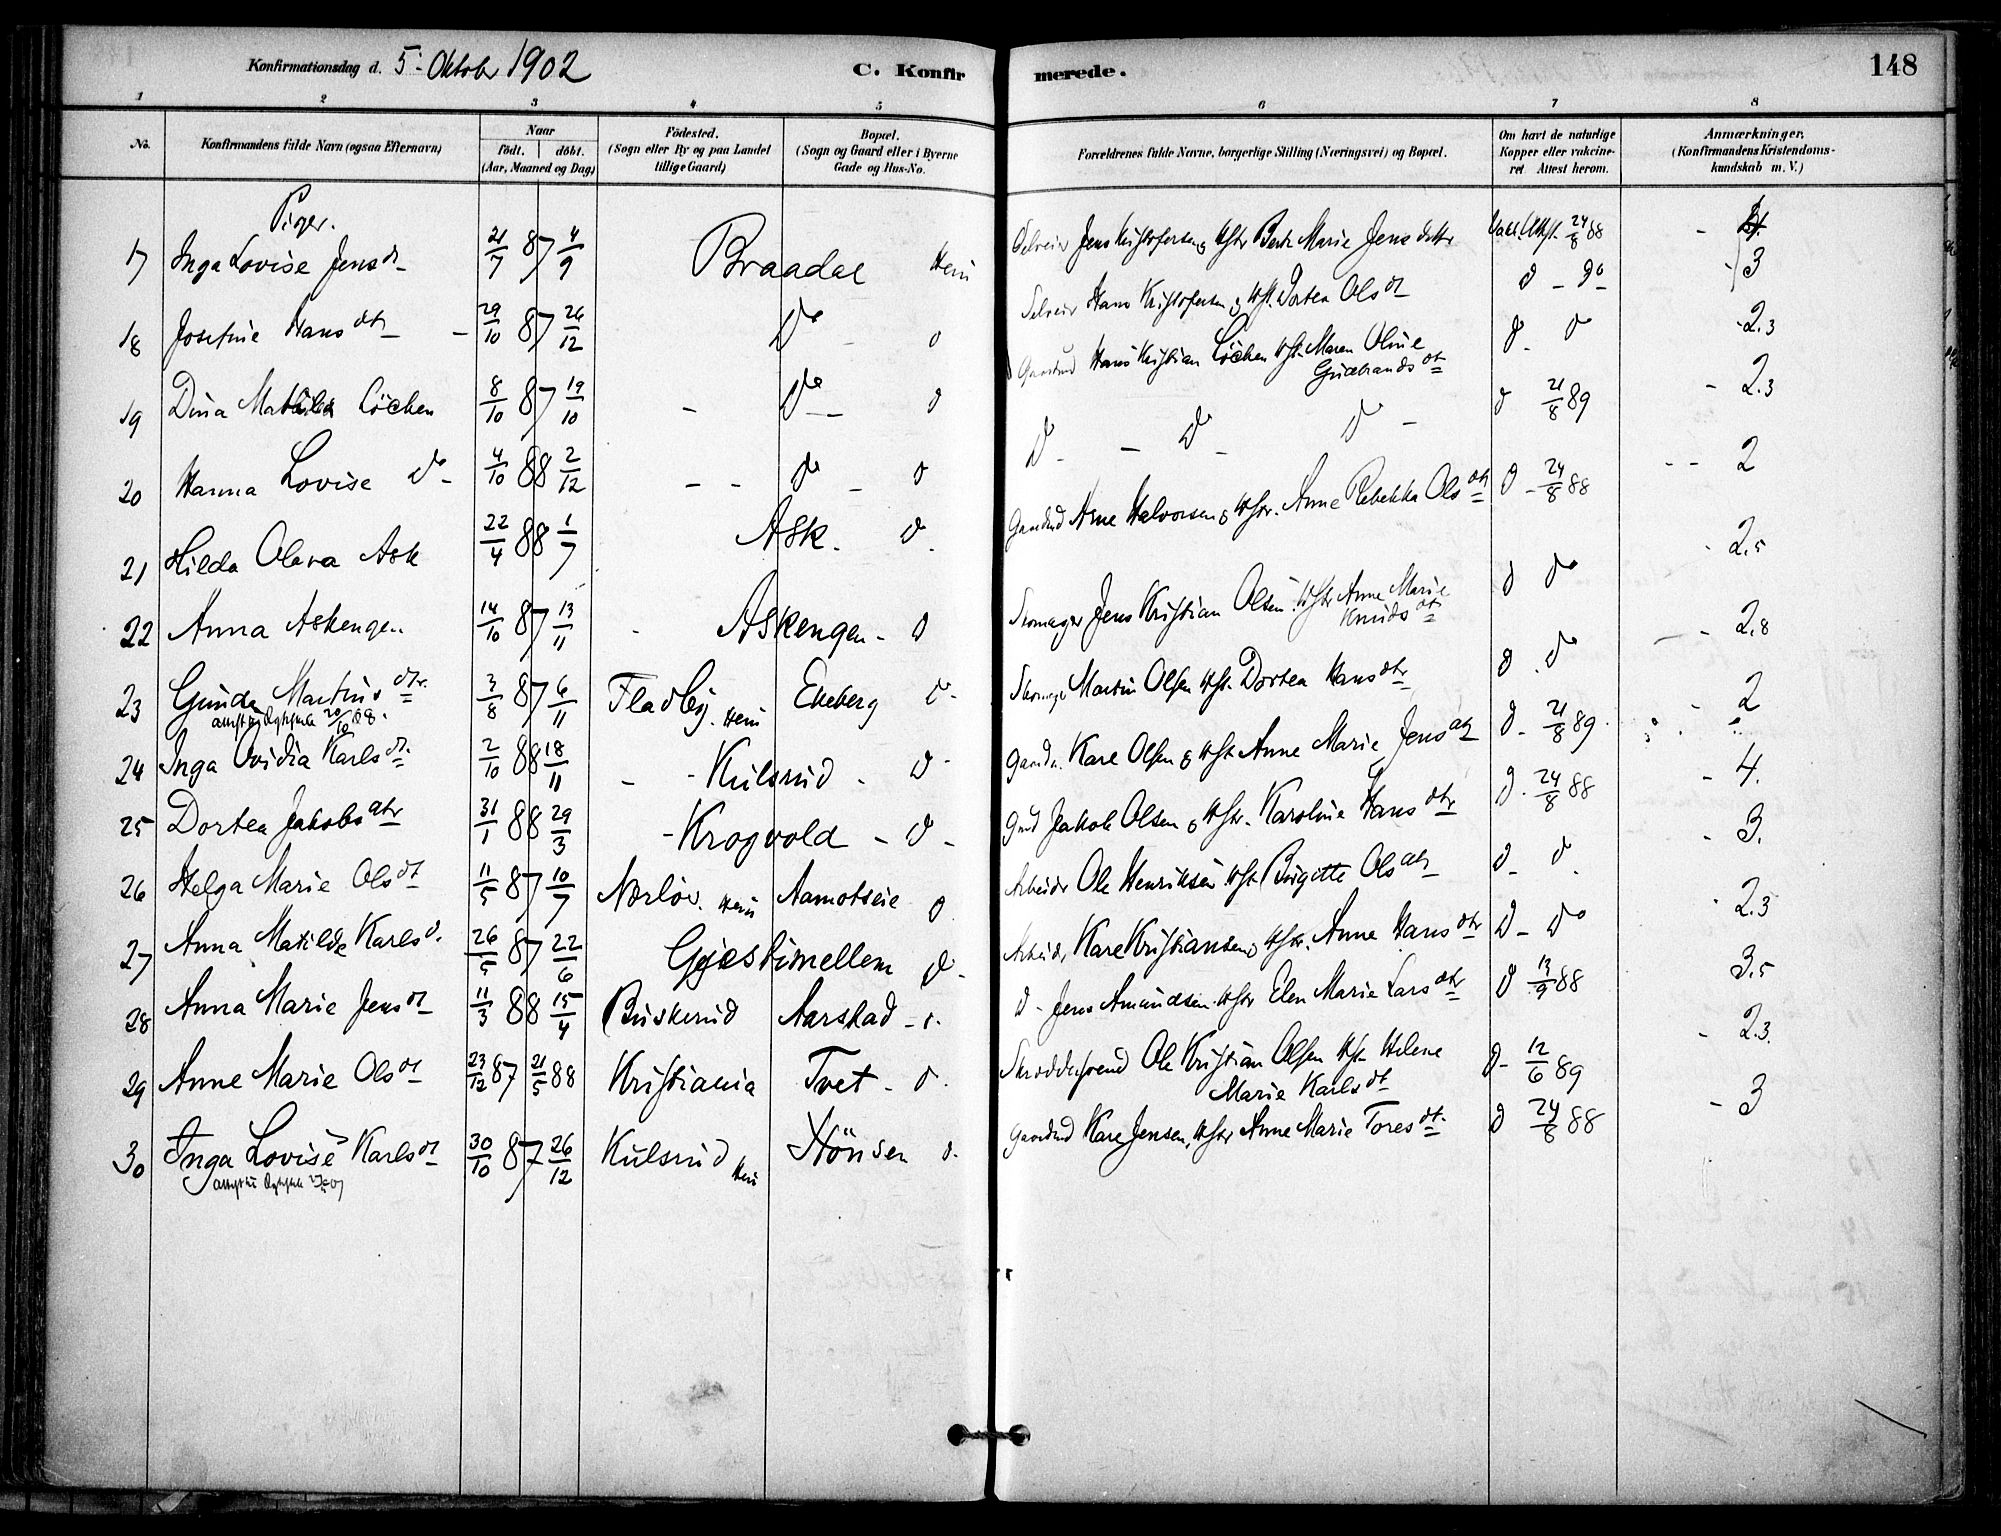 Konfirmationsdag d. 5- Oktober 1902
C. Konfirmerede.
148
1 2 3 4 5 6 7 8
No. Konfirmandens fulde Navn (ogsaa Efternavn) Naar födt. döbt. (Aar, Maaned og Dag) Födested. (Sogn eller By og paa Landet tillige Gaard) Bopæl. (Sogn og Gaard eller i Byerne Gade og Hus-No. Forældrenes fulde Navne, borgerlige Stilling (Næringsvei) og Bopæl. Om havt de naturlige Kopper eller vakcineret Attest herom. Anmærkninger. (Konfirmandens Kristendomskundskab m. V.)
Piger.
17 Inga Lovise Jensdt 21/7 87 4/9 Braadal Heni Selveier Jens Kristofersen & Hstr Berte Marie Jensdatter Vakc. Attst. 24/8 88 - 3
18 Josefine Hansdtr - 29/10 87 26/12 Do d Selveier Hans Kristofersen & Hst. Dortea Olsdt d - do - 2.3
19 Dina Mathilda Löchen 8/10 87 19/10 - Do - d Gaardmd Hans Kristian Löchen Hst. Maren Oline Gudbrandsdt d - d - 2.3
20 Hanna Lovise do - 4/10 88 2/12 - - do - d D - D - D - d 21/8 89 - - 2
21 Hilda Olava Ask 22/4 88 1/7 Ask. d. Gaardmd Arne Halvorsen & Hstr. Anne Rebekka Olsdtr d - 24/8 88 - 2.5
22 Anna Askengen 14/10 87 13/11 - Askengen - d Skomager Jens Kristian Olsen Hstr Anne Marie Knudsdtr d do - 2.8
23 Gunda Martinsdtr. 3/8 87 6/11 Fladby. Heni Ekeberg d - Skomager Martin Olsen Hst. Dortea Hansdtr d . do - 2
20/10 08.
24 Inga Ovidia Karlsdt. 2/10 88 18/11 - - Kulsrud - d - Gaardm. Karl Olsen & Hst. Anne Marie Jensdtr d - 21/8 89 - 4.
25 Dortea Jakobsdtr 31/1 88 29/3 - Krogvold - d - Gmd Jakob Olsen & Hstr. Karoline Hansdtr d . 24/8 88 - 3.
26 Helga Marie Olsdt 11/5 87 10/7 Nerlöv. Heni Aamotseie d Arbeider Ole Henriksen Hst. Birgitte Olsdtr d - d . 2.3
27 Anna Matilde Karlsd. 26/5 87 22/6 Gjestimellem d - Arbeid. Karl Kristiansen & Hstr. Anne Hansdtr d - do 3.5
28 Anna Marie Jensdt 11/3 88 15/4 Buskerud Aarstad - d. D - Jens Amundsen Hstr Elen Marie Larsdtr d 13/9 88 - 2.3.
29 Anne Marie Olsdt 23/12 87 21/5 88 Kristiania Tvet - d . Skrædersvend Ole Kristian Olsen Hst. Helene Marie Karlsdt d - 12/6 89 - 3
30 Inga Lovise Karlsdt 30/10 87 26/12 Kulsrud Heni Hönsen d. Gaardmd Karl Jensen, Hstr Anne Marie Toresdt. d 24/8 88